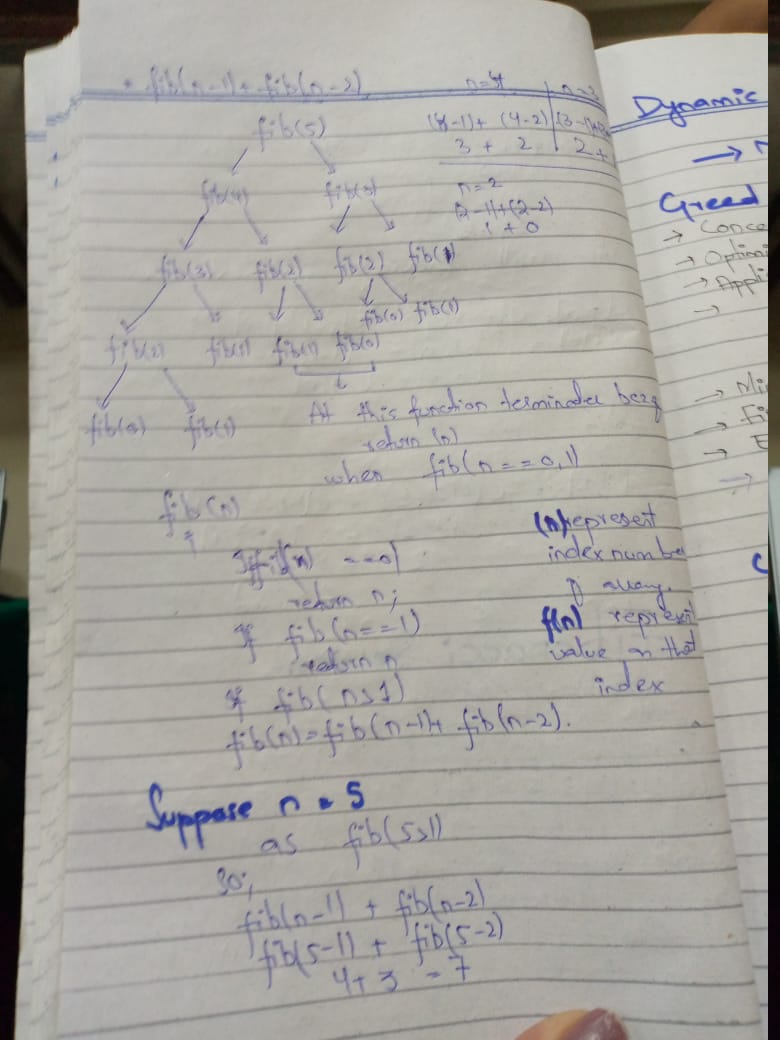 * fib(n-1) + fib(n-2)
n=4
(4-1)+ (4-2)
3 + 2
(3-1)
2 +
n=2
(2-1)+(2-2)
1 + 0
fib(5)
fib(4) fib(3)
fib(3) fib(2) fib(2) fib(1)
fib(0) fib(1)
fib(2) fib(1) fib(1) fib(0)
fib(0) fib(1)
At this function terminates
return (n)
when fib(n == 0,1)
fib(n)
If fib(n) == 0
return n;
if fib(n==1)
return n
if fib(n>1)
fib(n)=fib(n-1)+ fib(n-2).
(n) represent
index number
of array.
f(n) represent
value on that
index
Suppose n = 5
as fib(5>1)
So;
fib(n-1) + fib(n-2)
fib(5-1) + fib(5-2)
4+3 = 7
Dynamic
→
Greed
→ Conce
→ Optimi
→ Appli
→
→ Mi
→ Fi
→ E
→